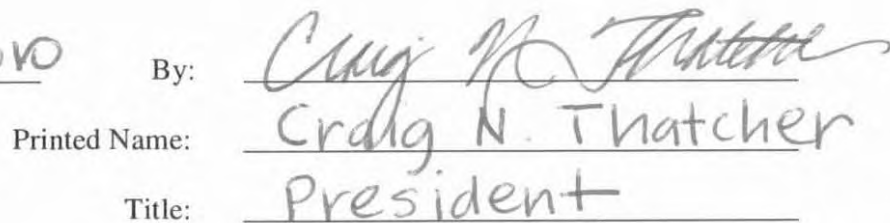 By: Craig N Thatcher
Printed Name: Craig N. Thatcher
Title: President